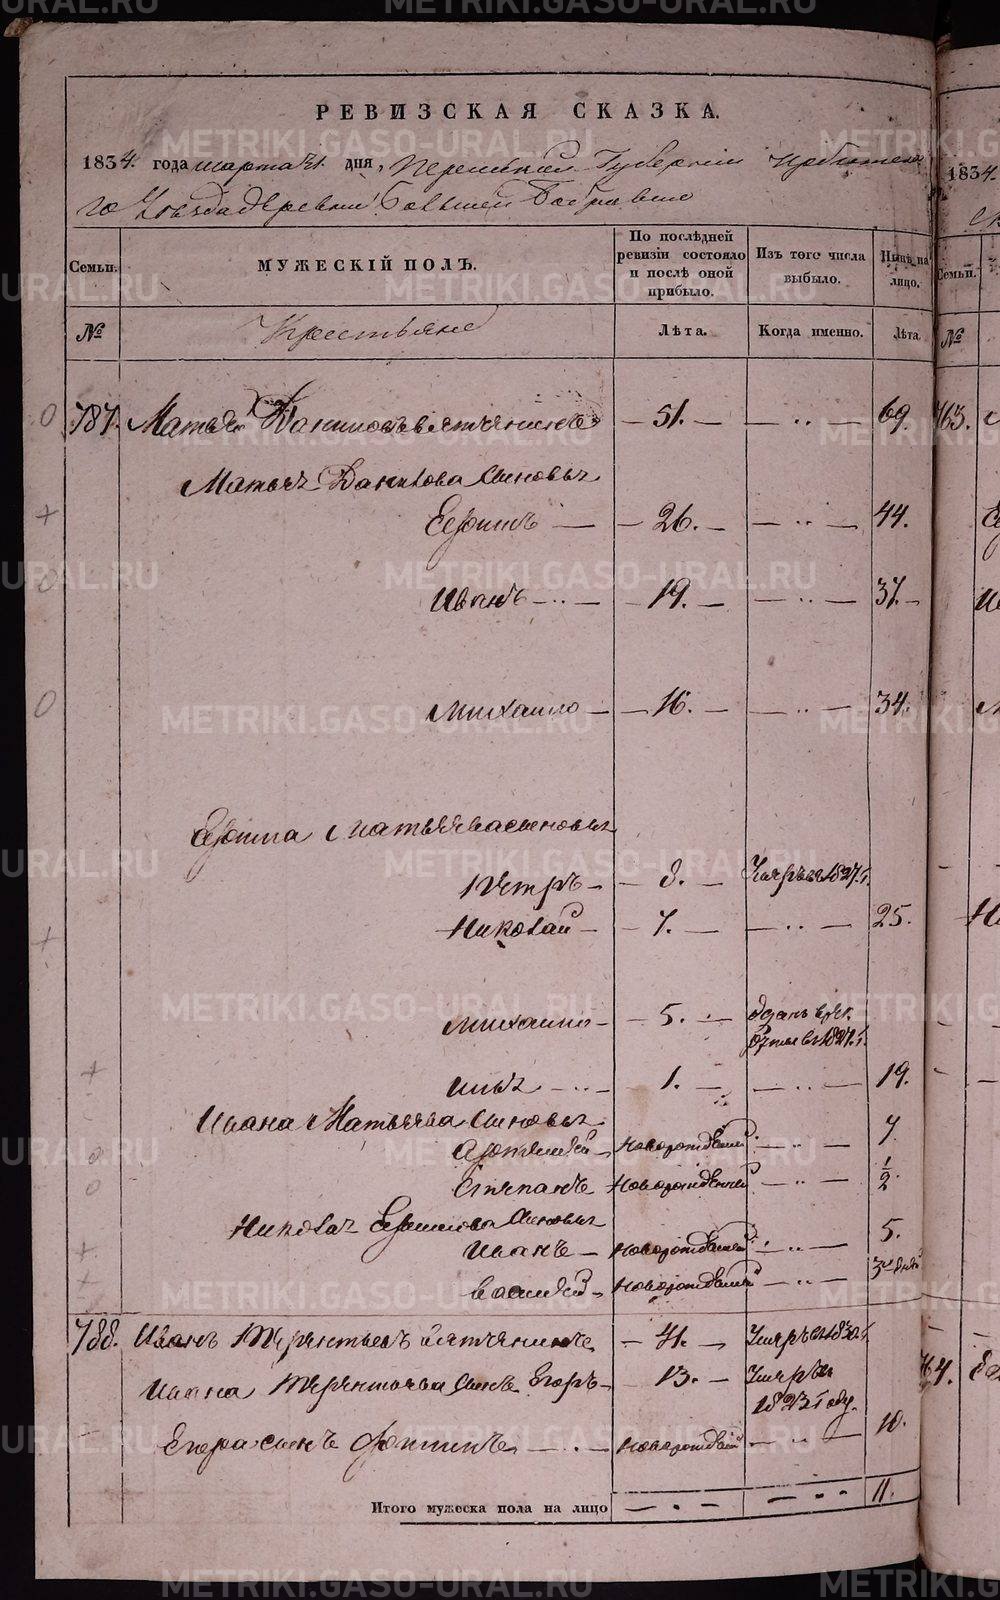 РЕВИЗСКАЯ СКАЗКА.
1834. года марта 21. дня, Пермской Губернии Ирбитска
го Уезда деревни Большей
Семьи. МУЖЕСКІЙ ПОЛЪ. По послѣдней ревизіи состояло и послѣ оной прибыло. Изъ того числа выбыло. Нынѣ на лицо.
№ Крестьяне Лѣта. Когда именно. Лѣта.
787. Матвей Даниловъ Вятченинъ — 51. — — .. — 69.
Матвея Данилова сыновья
Ефимъ — — 26. — — .. — 44.
Иванъ — .. — — 19. — — .. — 37. —
Михаило — — 16. — — .. — 34.
Ефима Матвеева сыновья
Петръ — — 8. — Умре въ 1827. г.
Николай — — 7. — — .. — 25.
Михаило — — 5. — Зданъ в рек
руты въ 1827. г.
Илья — .. — — 1. — — .. — 19.
Ивана Матвеева сыновья
новорожденный — .. — 7
Степанъ новорожденный — .. — 1/2.
Николая Ефимова сыновья
Иванъ — новорожденный — .. — 5.
Василей — новорожденный — .. — 3 дней
788. Иванъ Терентьевъ Вятченинъ — 41. — Умре в 1830. г
Ивана Терентьева сынъ Егоръ — — 13. — Умре въ
1823 году.
Егора сынъ Филипъ — . — новорожденный — .. — 10.
Итого мужеска пола на лицо — . — — .. — 11.
1834.
Семьи.
№
763.
764.
METRIKI.GASO-URAL.RU